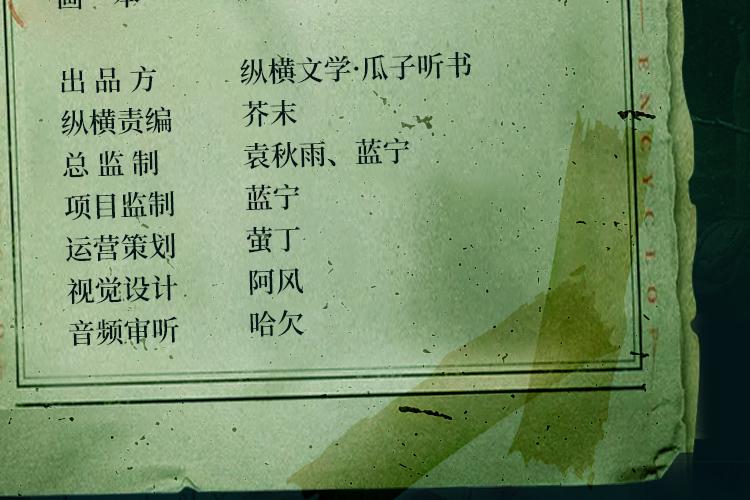 画 本
出品方 纵横文学·瓜子听书
纵横责编 芥末
总监制 袁秋雨、蓝宁
项目监制 蓝宁
运营策划 萤丁
视觉设计 阿风
音频审听 哈欠
ENCYCLOP